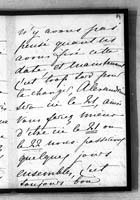 n'y avons pas
pensé quand nous
avons fixé cette
date et maintenant
c'est trop tard pour
le changer. Alexandrine
sera ici le 21, ainsi
vous feriez mieux
d'être ici le 21 ou
le 22 nous passerions
quelques jours
ensemble, c'est
toujours bon